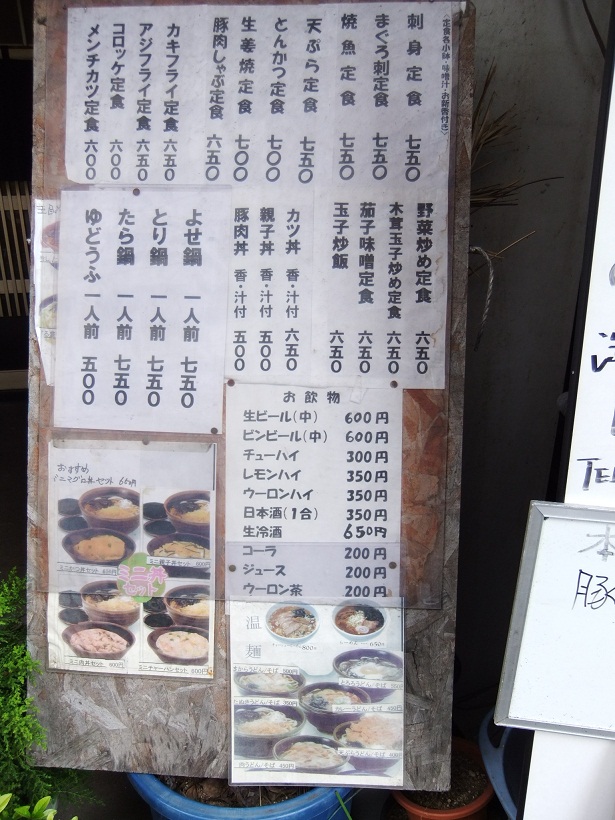 (定食名小鉢・味噌汁・お新香付き)
刺身定食 七五〇
まぐろ刺定食 七五〇
焼魚定食 七五〇
天ぷら定食 七五〇
とんかつ定食 七〇〇
生姜焼定食 七〇〇
豚肉しゃぶ定食 六五〇
カキフライ定食 六五〇
アジフライ定食 六五〇
コロッケ定食 六〇〇
メンチカツ定食 六〇〇
野菜炒め定食 六五〇
木茸玉子炒め定食 六五〇
茄子味噌定食 六五〇
玉子炒飯 六五〇
カツ丼 香・汁付 六五〇
親子丼 香・汁付 五〇〇
豚肉丼 香・汁付 五〇〇
よせ鍋 一人前 七五〇
とり鍋 一人前 七五〇
たら鍋 一人前 七五〇
ゆどうふ 一人前 五〇〇
お飲物
生ビール(中) 600円
ビンビール(中) 600円
チューハイ 300円
レモンハイ 350円
ウーロンハイ 350円
日本酒(1合) 350円
生冷酒 650円
コーラ 200円
ジュース 200円
ウーロン茶 200円
おすすめ
ミニマグロ丼セット 660円
ミニカツ丼セット
ミニ親子丼セット 600円
ミニ丼セット
ミニ肉丼セット 600円
ミニチャーハンセット 600円
温麺
TEL
豚